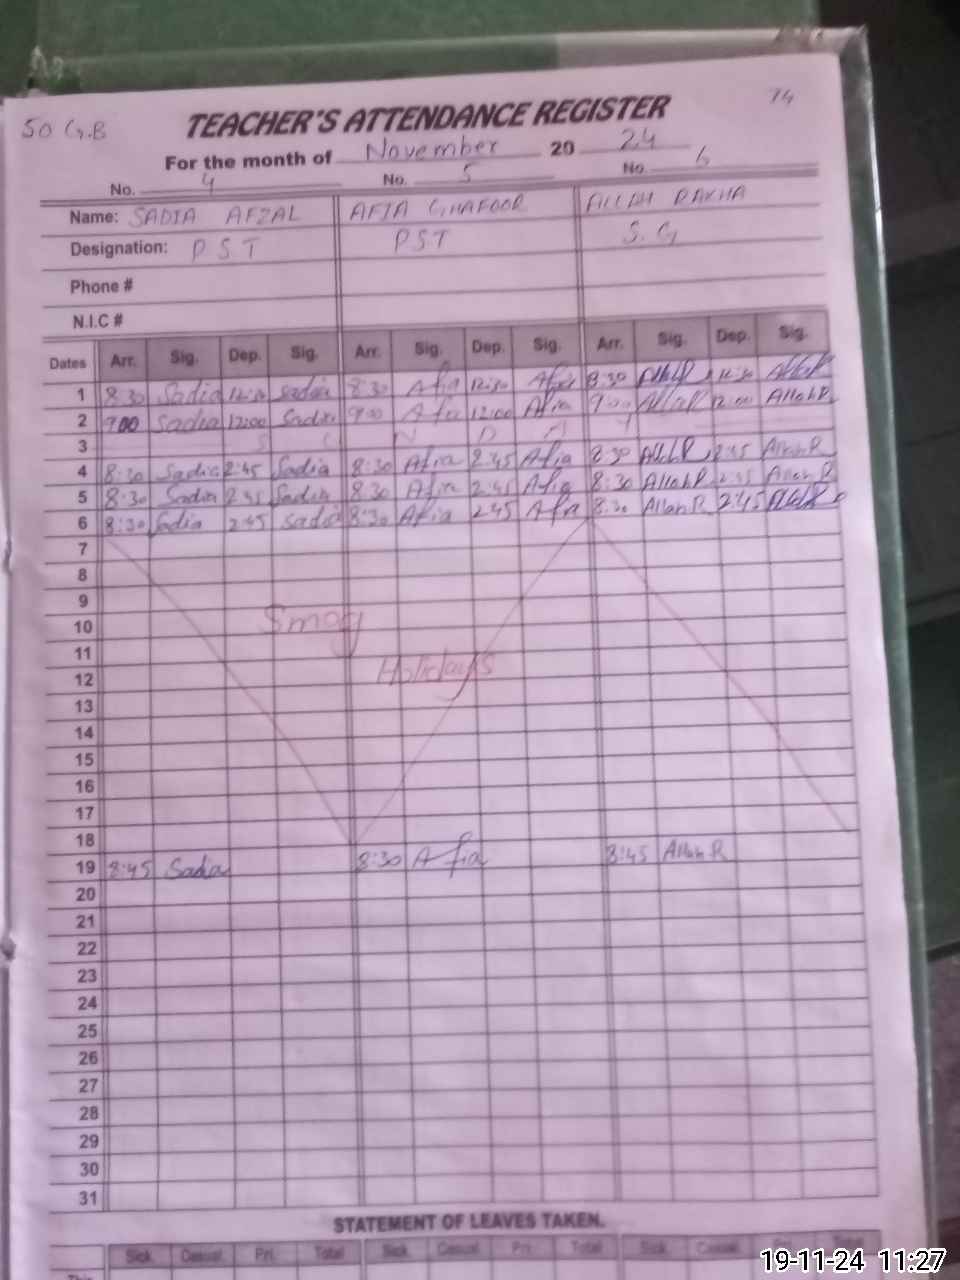 74
50 G.B
TEACHER'S ATTENDANCE REGISTER
For the month of November 20 24
No. 4 No. 5 No. 6
Name: SADIA AFZAL AFIA GHAFOOR ALLAH RAKHA
Designation: PST PST S.G
Phone #
N.I.C #
Dates Arr. Sig. Dep. Sig. Arr. Sig. Dep. Sig. Arr. Sig. Dep. Sig.
1 8:30 Sadia 12:30 Sadia 8:30 Afia 12:30 Afia 8:30 AllahR 12:30 AllahR
2 9:00 Sadia 12:00 Sadia 9:00 Afia 12:00 Afia 9:00 AllahR 12:00 AllahR
3 S U N D A Y
4 8:30 Sadia 2:45 Sadia 8:30 Afia 2:45 Afia 8:30 AllahR 2:45 AllahR
5 8:30 Sadia 2:45 Sadia 8:30 Afia 2:45 Afia 8:30 AllahR 2:45 AllahR
6 8:30 Sadia 2:45 Sadia 8:30 Afia 2:45 Afia 8:30 AllahR 2:45 AllahR
7
8
9
10 Smog
11
12 Holidays
13
14
15
16
17
18
19 8:45 Sadia 8:30 Afia 8:45 AllahR
20
21
22
23
24
25
26
27
28
29
30
31
STATEMENT OF LEAVES TAKEN.
Sick Casual Pri. Total Sick Casual Pri. Total Sick Casual Pri. Total
This
19-11-24 11:27